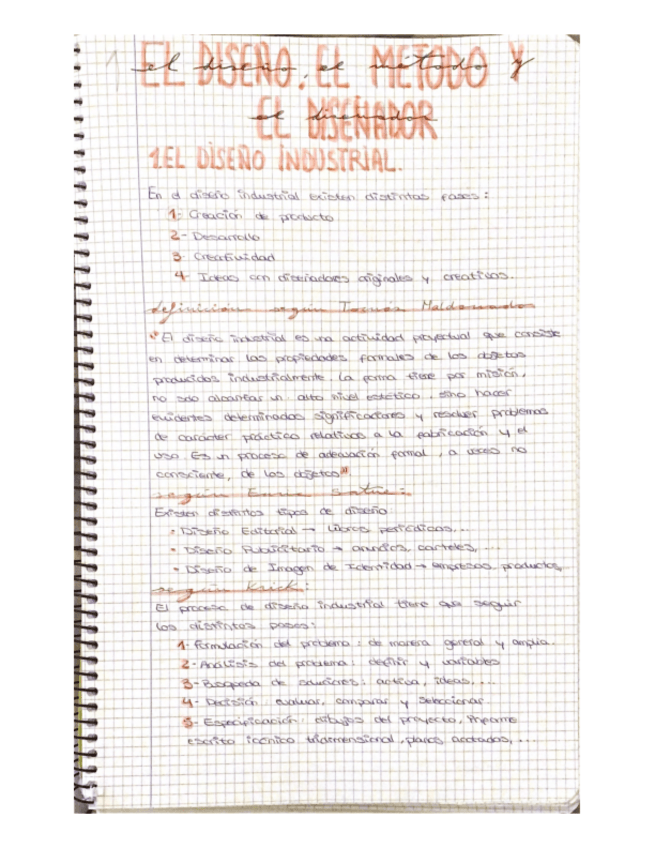 1 EL DISEÑO, EL METODO Y
el diseño, el metodo y
EL DISEÑADOR
el diseñador
1.EL DISEÑO INDUSTRIAL.
En el diseño industrial existen distintas fases:
1- Creación de producto
2- Desarrollo
3- Creatividad
4- Ideas con diseñadores originales y creativos.
definición según Tomás Maldonado
"El diseño industrial es una actividad proyectual que consiste
en determinar las propiedades formales de los objetos
producidos industrialmente. La forma tiene por misión,
no solo alcanzar un alto nivel estético, sino hacer
evidentes determinados significaciones y resolver problemas
de carácter práctico relativos a la fabricación y el
uso. Es un proceso de adecuación formal, a veces no
consciente, de los objetos"
según Enric Satué:
Existen distintos tipos de diseño:
• Diseño Editorial → Libros, periódicos,...
• Diseño Publicitario → anuncios, carteles,...
• Diseño de Imagen de Identidad → empresas, productos,
según Krick:
El proceso de diseño industrial tiene que seguir
los distintos pasos:
1- Formulación del problema: de manera general y amplia.
2- Análisis del problema: definir y variables
3- Busqueda de soluciones: activa, ideas,...
4- Decisión: evaluar, comparar y seleccionar
5- Especificación: dibujos del proyecto, informe
escrito icónico tridimensional, planos acotados,...